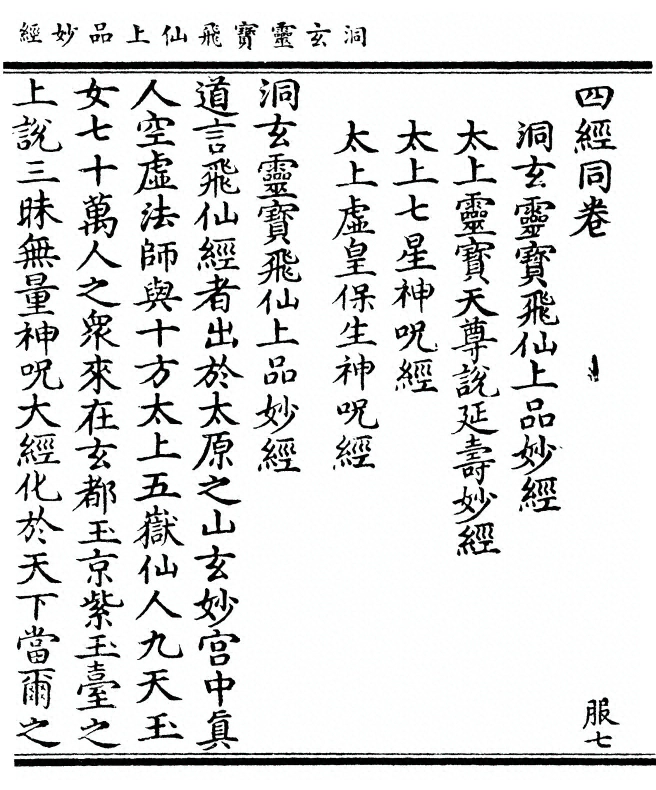 洞玄靈寶飛仙上品妙經
四經同卷
服七
洞玄靈寶飛仙上品妙經
太上靈寶天尊說延壽妙經
太上七星神呪經
太上虛皇保生神呪經
洞玄靈寶飛仙上品妙經
道言飛仙經者出於太原之山玄妙宮中眞
人空虛法師與十方太上五嶽仙人九天玉
女七十萬人之衆來在玄都玉京紫玉臺之
上說三昧無量神呪大經化於天下當爾之